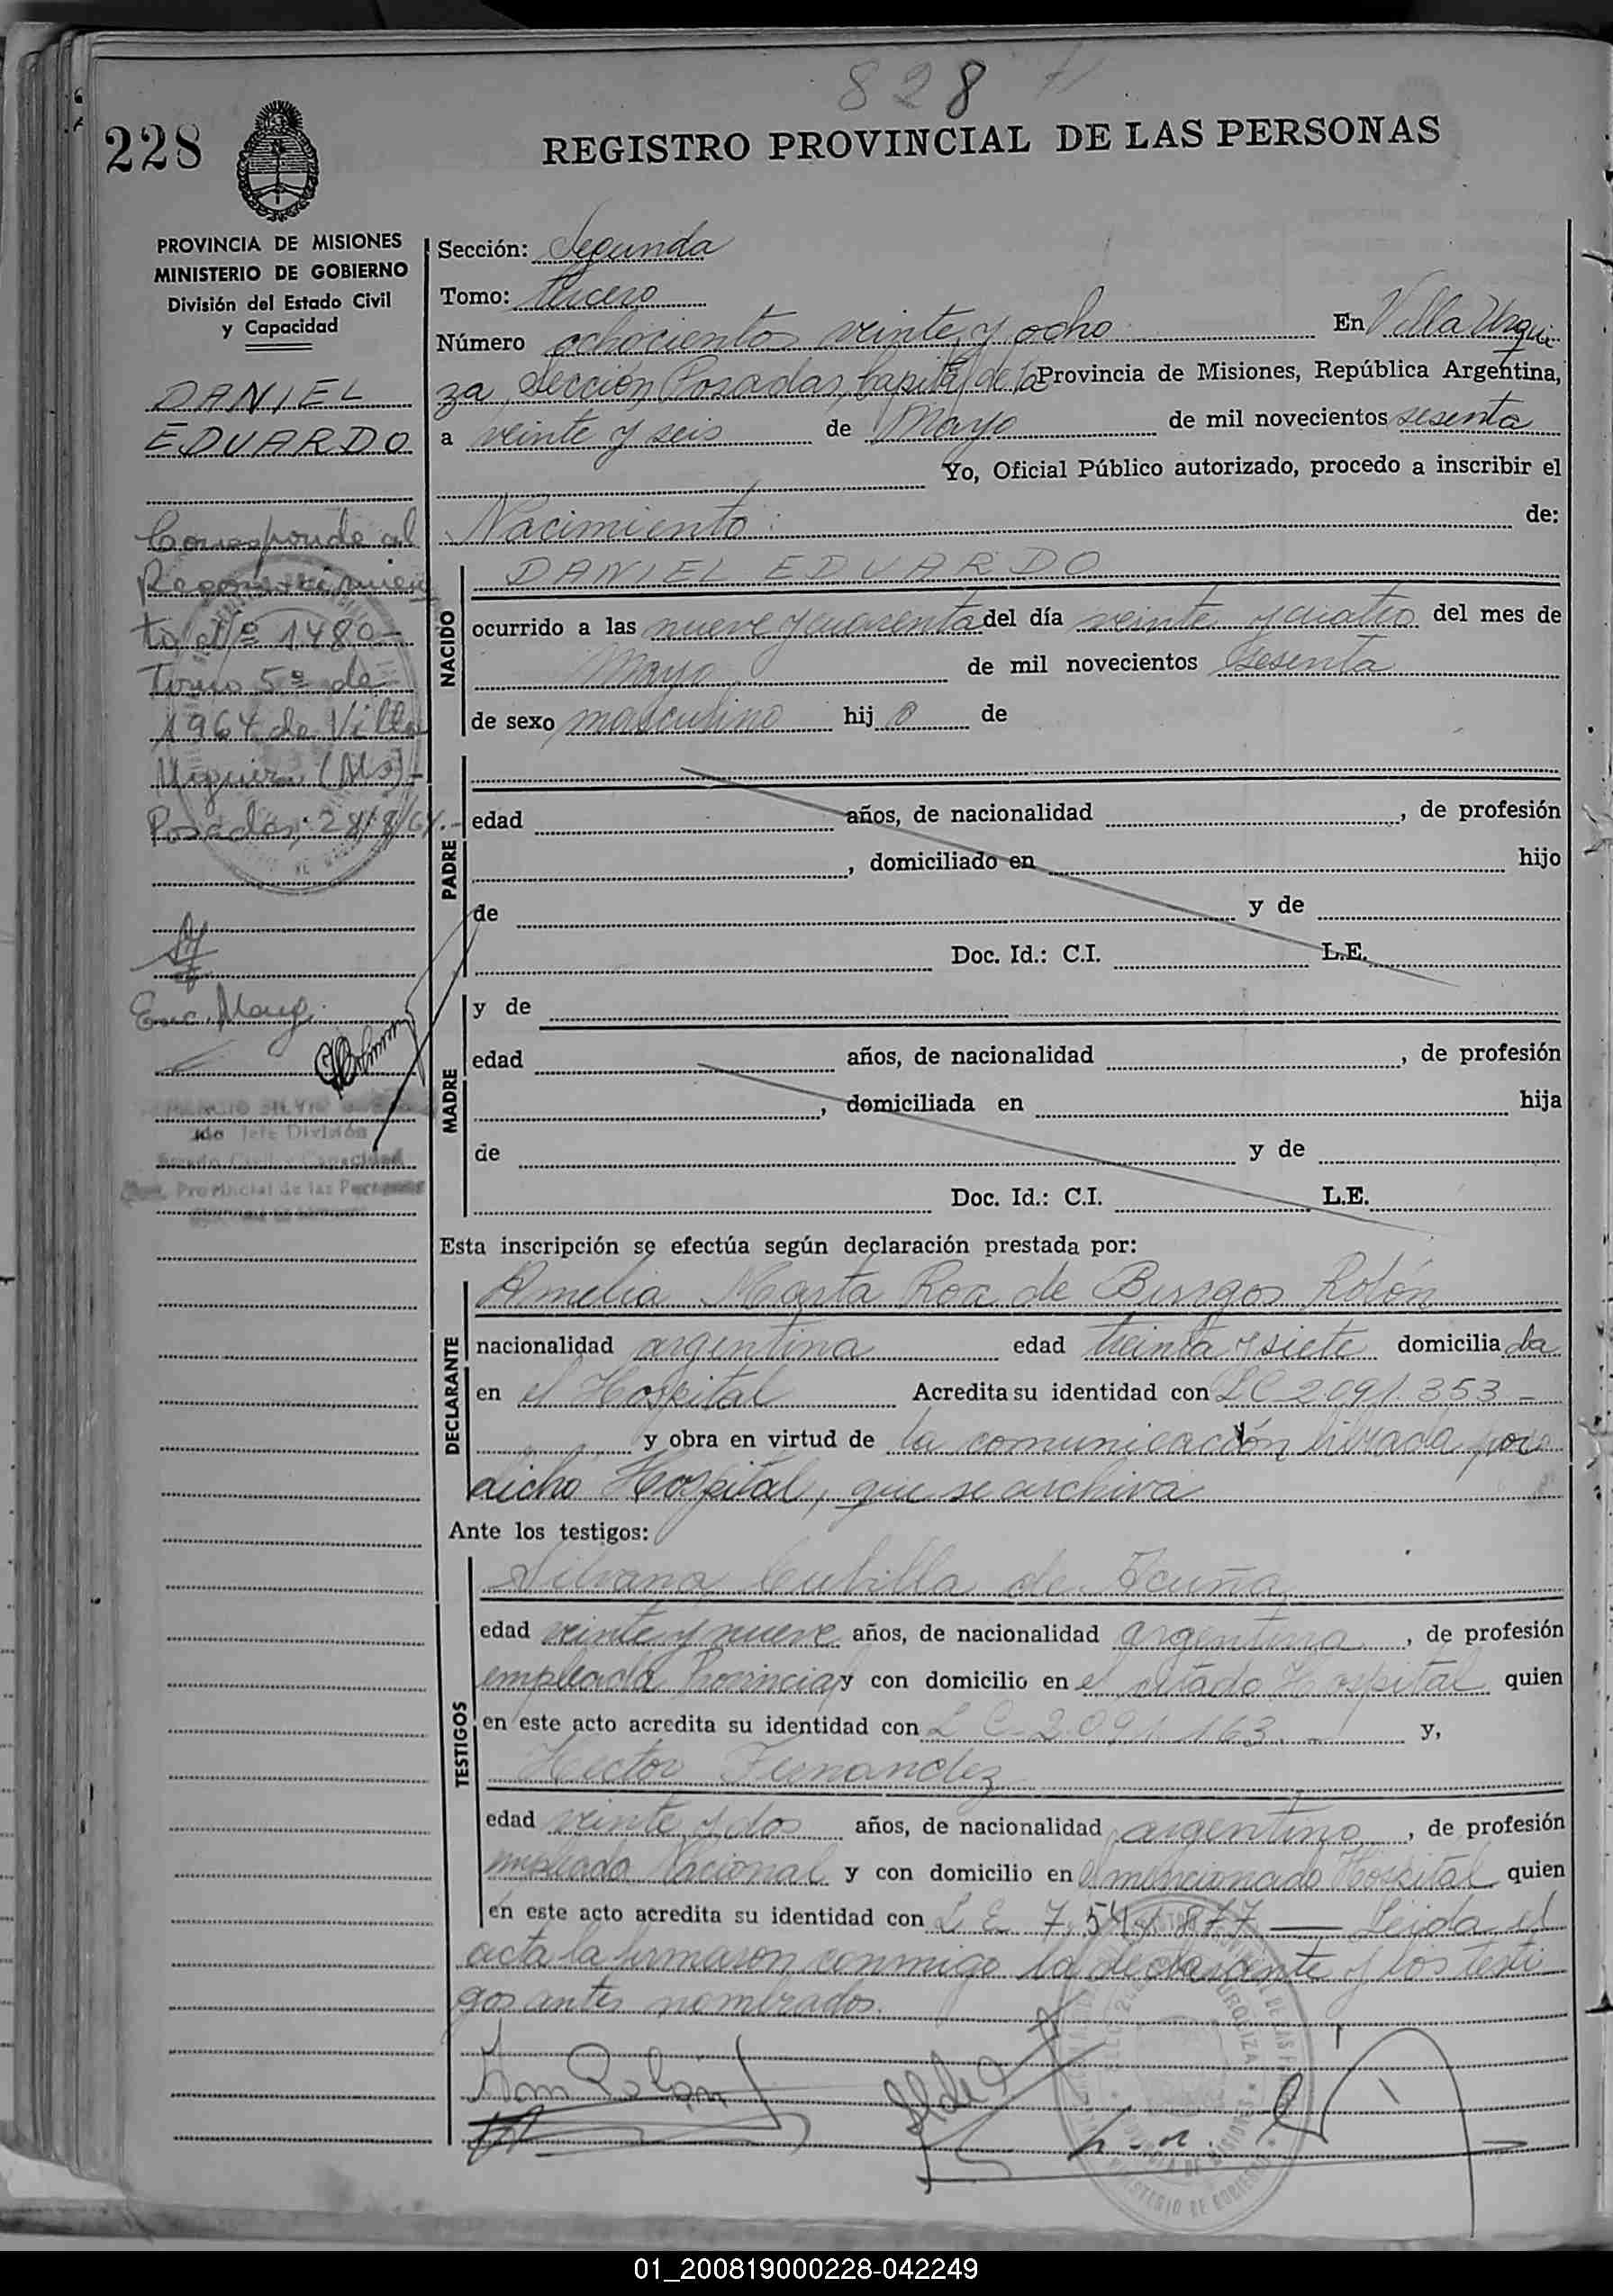 828
228
REGISTRO PROVINCIAL DE LAS PERSONAS
PROVINCIA DE MISIONES
MINISTERIO DE GOBIERNO
División del Estado Civil
y Capacidad
DANIEL
EDUARDO
Corresponde al
Reconocimien
to Nº 1480-
Tomo 5º de
1964 de Villa
Urquiza (Ms)-
Posadas, 28/8/64.-
Enc. Marg.
Jefe División
Estado Civil y Capacidad
Provincial de las Personas
Sección: Segunda
Tomo: tercero
Número ochocientos veinte y ocho En Villa Urqui
za, Sección Posadas, Capital de la Provincia de Misiones, República Argentina,
a veinte y seis de Mayo de mil novecientos sesenta
Yo, Oficial Público autorizado, procedo a inscribir el
Nacimiento: de:
NACIDO
DANIEL EDUARDO
ocurrido a las nueve y cuarenta del día veinte y cuatro del mes de
Mayo de mil novecientos sesenta
de sexo masculino hijo de
PADRE
edad años, de nacionalidad , de profesión
, domiciliado en hijo
de y de
Doc. Id.: C.I. L.E.
MADRE
y de
edad años, de nacionalidad , de profesión
, domiciliada en hija
de y de
Doc. Id.: C.I. L.E.
Esta inscripción se efectúa según declaración prestada por:
DECLARANTE
Amelia Marta Roa de Burgos Rolón
nacionalidad argentina edad treinta y siete domiciliada
en el Hospital Acredita su identidad con LC 2.091.353-
y obra en virtud de la comunicación librada por
dicho Hospital, que se archiva
Ante los testigos:
TESTIGOS
Silvana Cubilla de Acuña
edad veinte y nueve años, de nacionalidad argentina, de profesión
empleada Provincial y con domicilio en el citado Hospital quien
en este acto acredita su identidad con L C- 2.091.163.- y,
Hector Fernandez
edad veinte y dos años, de nacionalidad argentino, de profesión
empleado Nacional y con domicilio en el mencionado Hospital quien
en este acto acredita su identidad con L E 7.541.877 — Leida el
acta la firmaron conmigo la declarante y los testi
gos antes nombrados.
01_200819000228-042249